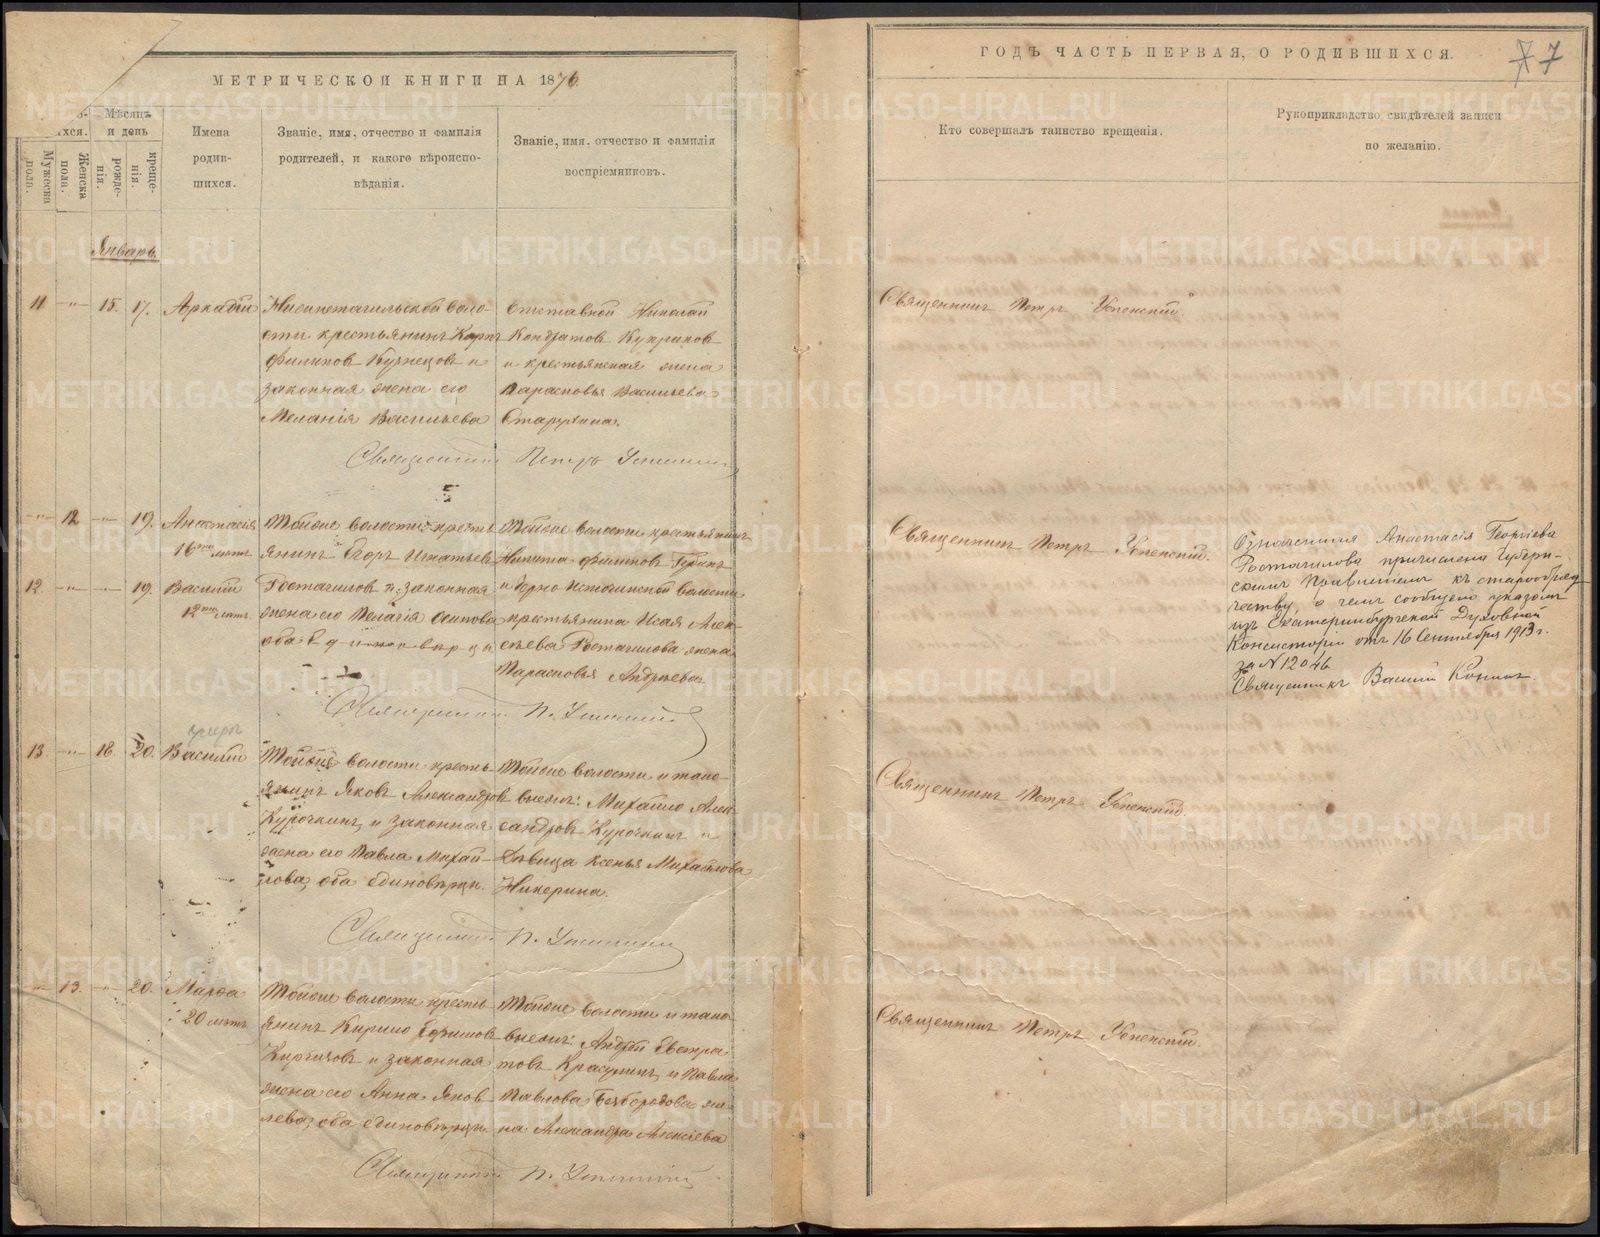 МЕТРИЧЕСКОЙ КНИГИ НА 1876
ГОДЪ ЧАСТЬ ПЕРВАЯ, О РОДИВШИХСЯ.
7
хся.
Мужеска пола.
Женска пола.
Мѣсяцъ и день
рожде-нія.
креще-нія.
Имена
родив-
шихся.
Званіе, имя, отчество и фамилія
родителей, и какого вѣроиспо-
вѣданія.
Званіе, имя, отчество и фамилія
воспріемниковъ.
Кто совершалъ таинство крещенія.
Рукоприкладство свидѣтелей записи
по желанію.
Январь
11 15. 17. Аркадій
Нижнетагильской воло-
сти крестьянинъ Карпъ
Филиповъ Кузнецовъ и
законная жена его
Меланія Васильева
Отставной Николай
Кондратовъ Куприковъ
и крестьянская жена
Парасковья Васильева
Старухина.
Священникъ Петръ Успенскій
Священникъ Петръ Успенскій.
12 19. Анастасія
16 лѣтъ
12. 19. Василій
12 лѣтъ
Тойже волости кресть-
янинъ Егоръ Игнатьевъ
Ростагиловъ и законная
жена его Пелагія Осипова
оба единовѣрцы
Тойже волости крестьянинъ
Никита Филиповъ
и волости
крестьянина Исая Алек-
сѣева Ростагилова жена
Парасковья Андреева
Священникъ П. Успенскій
Священникъ Петръ Успенскій.
Означенная Анастасія Георгіева
Ростагилова причислена Губерн-
скимъ Правленіемъ къ старообряд-
честву, о чемъ сообщено указомъ
изъ Екатеринбургской Духовной
Консисторіи отъ 16 Сентября 1913 г.
за № 12046
Священникъ Василій
умеръ
13. 18. 20. Василій
Тойже волости кресть-
янинъ Яковъ Александровъ
Курочкинъ, и законная
жена его Павла Михай-
лова, оба единовѣрцы.
Тойже волости и тако-
выежъ: Михайло Алек-
сандровъ Курочкинъ и
дѣвица Ксенья Михайлова
Никерина.
Священникъ П. Успенскій
Священникъ Петръ Успенскій.
13. 20. Марѳа
20 лѣтъ
Тойже волости кресть-
янинъ Кирило Ефимовъ
и законная
жена его Анна Яков-
лева, оба единовѣрцы
Тойже волости и тако-
выежъ: Андрей Евстра-
товъ и Павла
Павлова Безбородова же-
на Александра Алексѣева
Священникъ П. Успенскій
Священникъ Петръ Успенскій.
METRIKI.GASO-URAL.RU